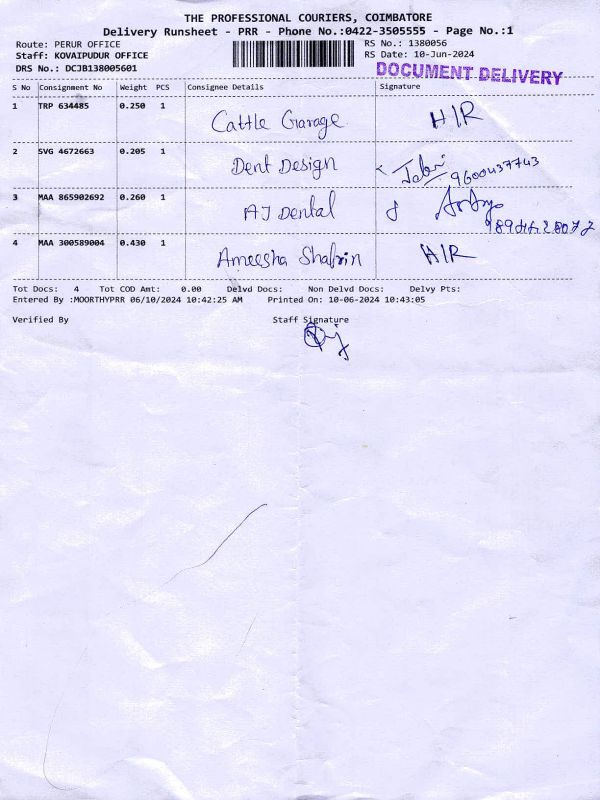 THE PROFESSIONAL COURIERS, COIMBATORE
Delivery Runsheet - PRR - Phone No.:0422-3505555 - Page No.:1
Route: PERUR OFFICE RS No.: 1380056
Staff: KOVAIPUDUR OFFICE RS Date: 10-Jun-2024
DRS No.: DCJB138005601 DOCUMENT DELIVERY
S No Consignment No Weight PCS Consignee Details Signature
1 TRP 634485 0.250 1 Cattle Garage H/R
2 SVG 4672663 0.205 1 Dent Design 9600437743
3 MAA 865902692 0.260 1 AJ Dental
4 MAA 300589004 0.430 1 Ameesha Shafrin H/R
Tot Docs: 4 Tot COD Amt: 0.00 Delvd Docs: Non Delvd Docs: Delvy Pts:
Entered By :MOORTHYPRR 06/10/2024 10:42:25 AM Printed On: 10-06-2024 10:43:05
Verified By Staff Signature